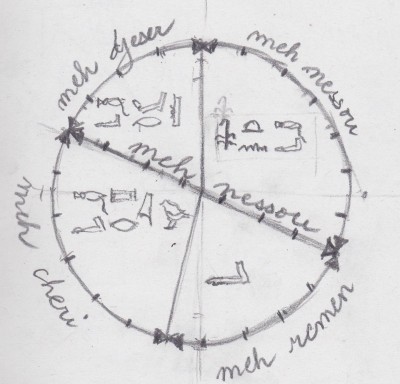 meh djeser
meh nessou
meh nessou
meh cheri
meh remen